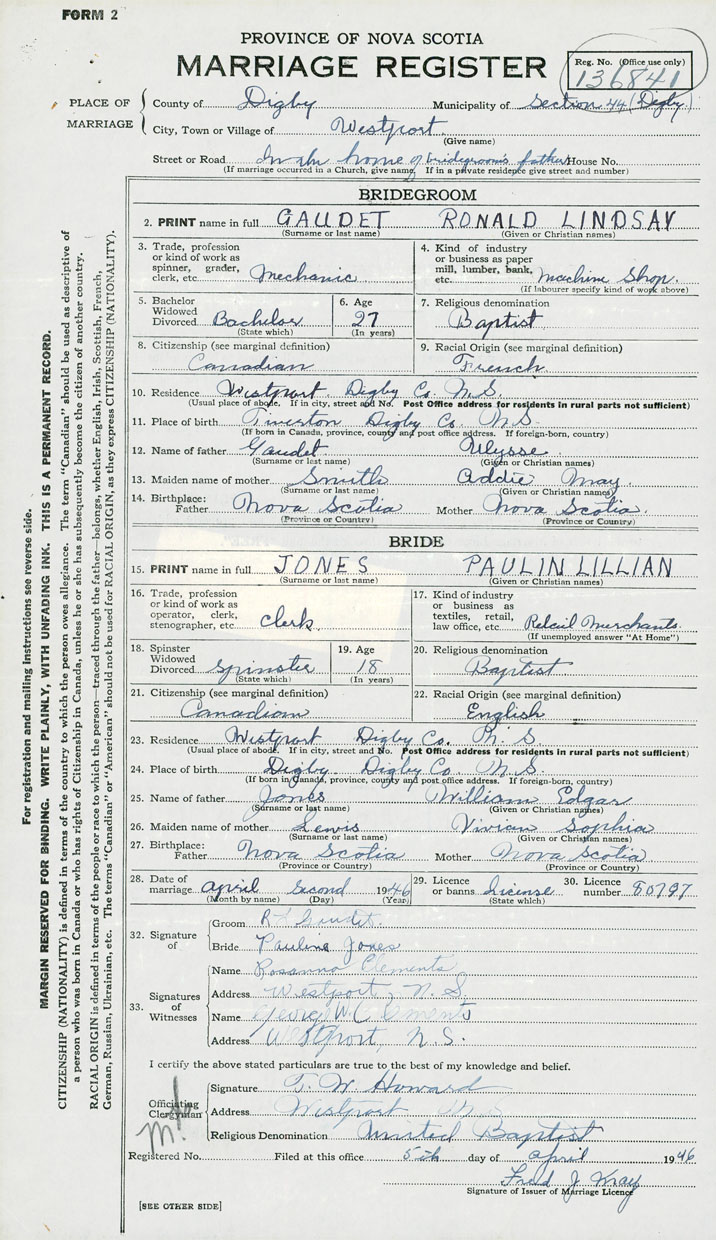 FORM 2
PROVINCE OF NOVA SCOTIA
MARRIAGE REGISTER
Reg. No. (Office use only)
136841
PLACE OF MARRIAGE
County of Digby Municipality of Section 44 (Digby)
City, Town or Village of Westport
(Give name)
Street or Road In the home of bridegroom's father House No.
(If marriage occurred in a Church, give name. If in a private residence give street and number)
BRIDEGROOM
2. PRINT name in full GAUDET RONALD LINDSAY
(Surname or last name) (Given or Christian names)
3. Trade, profession or kind of work as spinner, grader, clerk, etc. Mechanic
4. Kind of industry or business as paper mill, lumber, bank, etc. Machine Shop.
(If labourer specify kind of work above)
5. Bachelor Widowed Divorced Bachelor
(State which)
6. Age 27
(In years)
7. Religious denomination Baptist
8. Citizenship (see marginal definition) Canadian
9. Racial Origin (see marginal definition) French
10. Residence Westport Digby Co. N.S.
(Usual place of abode. If in city, street and No. Post Office address for residents in rural parts not sufficient)
11. Place of birth Tiverton Digby Co. N.S.
(If born in Canada, province, county and post office address. If foreign-born, country)
12. Name of father Gaudet Ulysse
(Surname or last name) (Given or Christian names)
13. Maiden name of mother Smith Addie May
(Surname or last name) (Given or Christian names)
14. Birthplace: Father Nova Scotia Mother Nova Scotia
(Province or Country) (Province or Country)
BRIDE
15. PRINT name in full JONES PAULIN LILLIAN
(Surname or last name) (Given or Christian names)
16. Trade, profession or kind of work as operator, clerk, stenographer, etc clerk
17. Kind of industry or business as textiles, retail, law office, etc. Retail Merchants
(If unemployed answer "At Home")
18. Spinster Widowed Divorced Spinster
(State which)
19. Age 18
(In years)
20. Religious denomination Baptist
21. Citizenship (see marginal definition) Canadian
22. Racial Origin (see marginal definition) English
23. Residence Westport Digby Co. N.S
(Usual place of abode. If in city, street and No. Post Office address for residents in rural parts not sufficient)
24. Place of birth Digby Digby Co. N.S
(If born in Canada, province, county and post office address. If foreign-born, country)
25. Name of father Jones William Edgar
(Surname or last name) (Given or Christian names)
26. Maiden name of mother Lewis Vivian Sophia
(Surname or last name) (Given or Christian names)
27. Birthplace: Father Nova Scotia Mother Nova Scotia
(Province or Country) (Province or Country)
28. Date of marriage April second 1946
(Month by name) (Day) (Year)
29. Licence or banns License
(State which)
30. Licence number 80797
32. Signature of
Groom R L Gaudet.
Bride Pauline Jones
33. Signatures of Witnesses
Name Rosanna Clements
Address Westport, N.S.
Name George W Clements
Address Westport, N.S.
I certify the above stated particulars are true to the best of my knowledge and belief.
Officiating Clergyman
Signature T. W. Howard
Address Westport N.S.
Religious Denomination United Baptist
Registered No. Filed at this office 5th day of April 1946
Fred J May
Signature of Issuer of Marriage Licence
[SEE OTHER SIDE]
For registration and mailing instructions see reverse side.
MARGIN RESERVED FOR BINDING. WRITE PLAINLY, WITH UNFADING INK. THIS IS A PERMANENT RECORD.
CITIZENSHIP (NATIONALITY) is defined in terms of the country to which the person owes allegiance. The term "Canadian" should be used as descriptive of
a person who was born in Canada or who has rights of Citizenship in Canada, unless he or she has subsequently become the citizen of another country.
RACIAL ORIGIN is defined in terms of the people or race to which the person—traced through the father—belongs, whether English, Irish, Scottish, French,
German, Russian, Ukrainian, etc. The terms "Canadian" or "American" should not be used for RACIAL ORIGIN, as they express CITIZENSHIP (NATIONALITY).